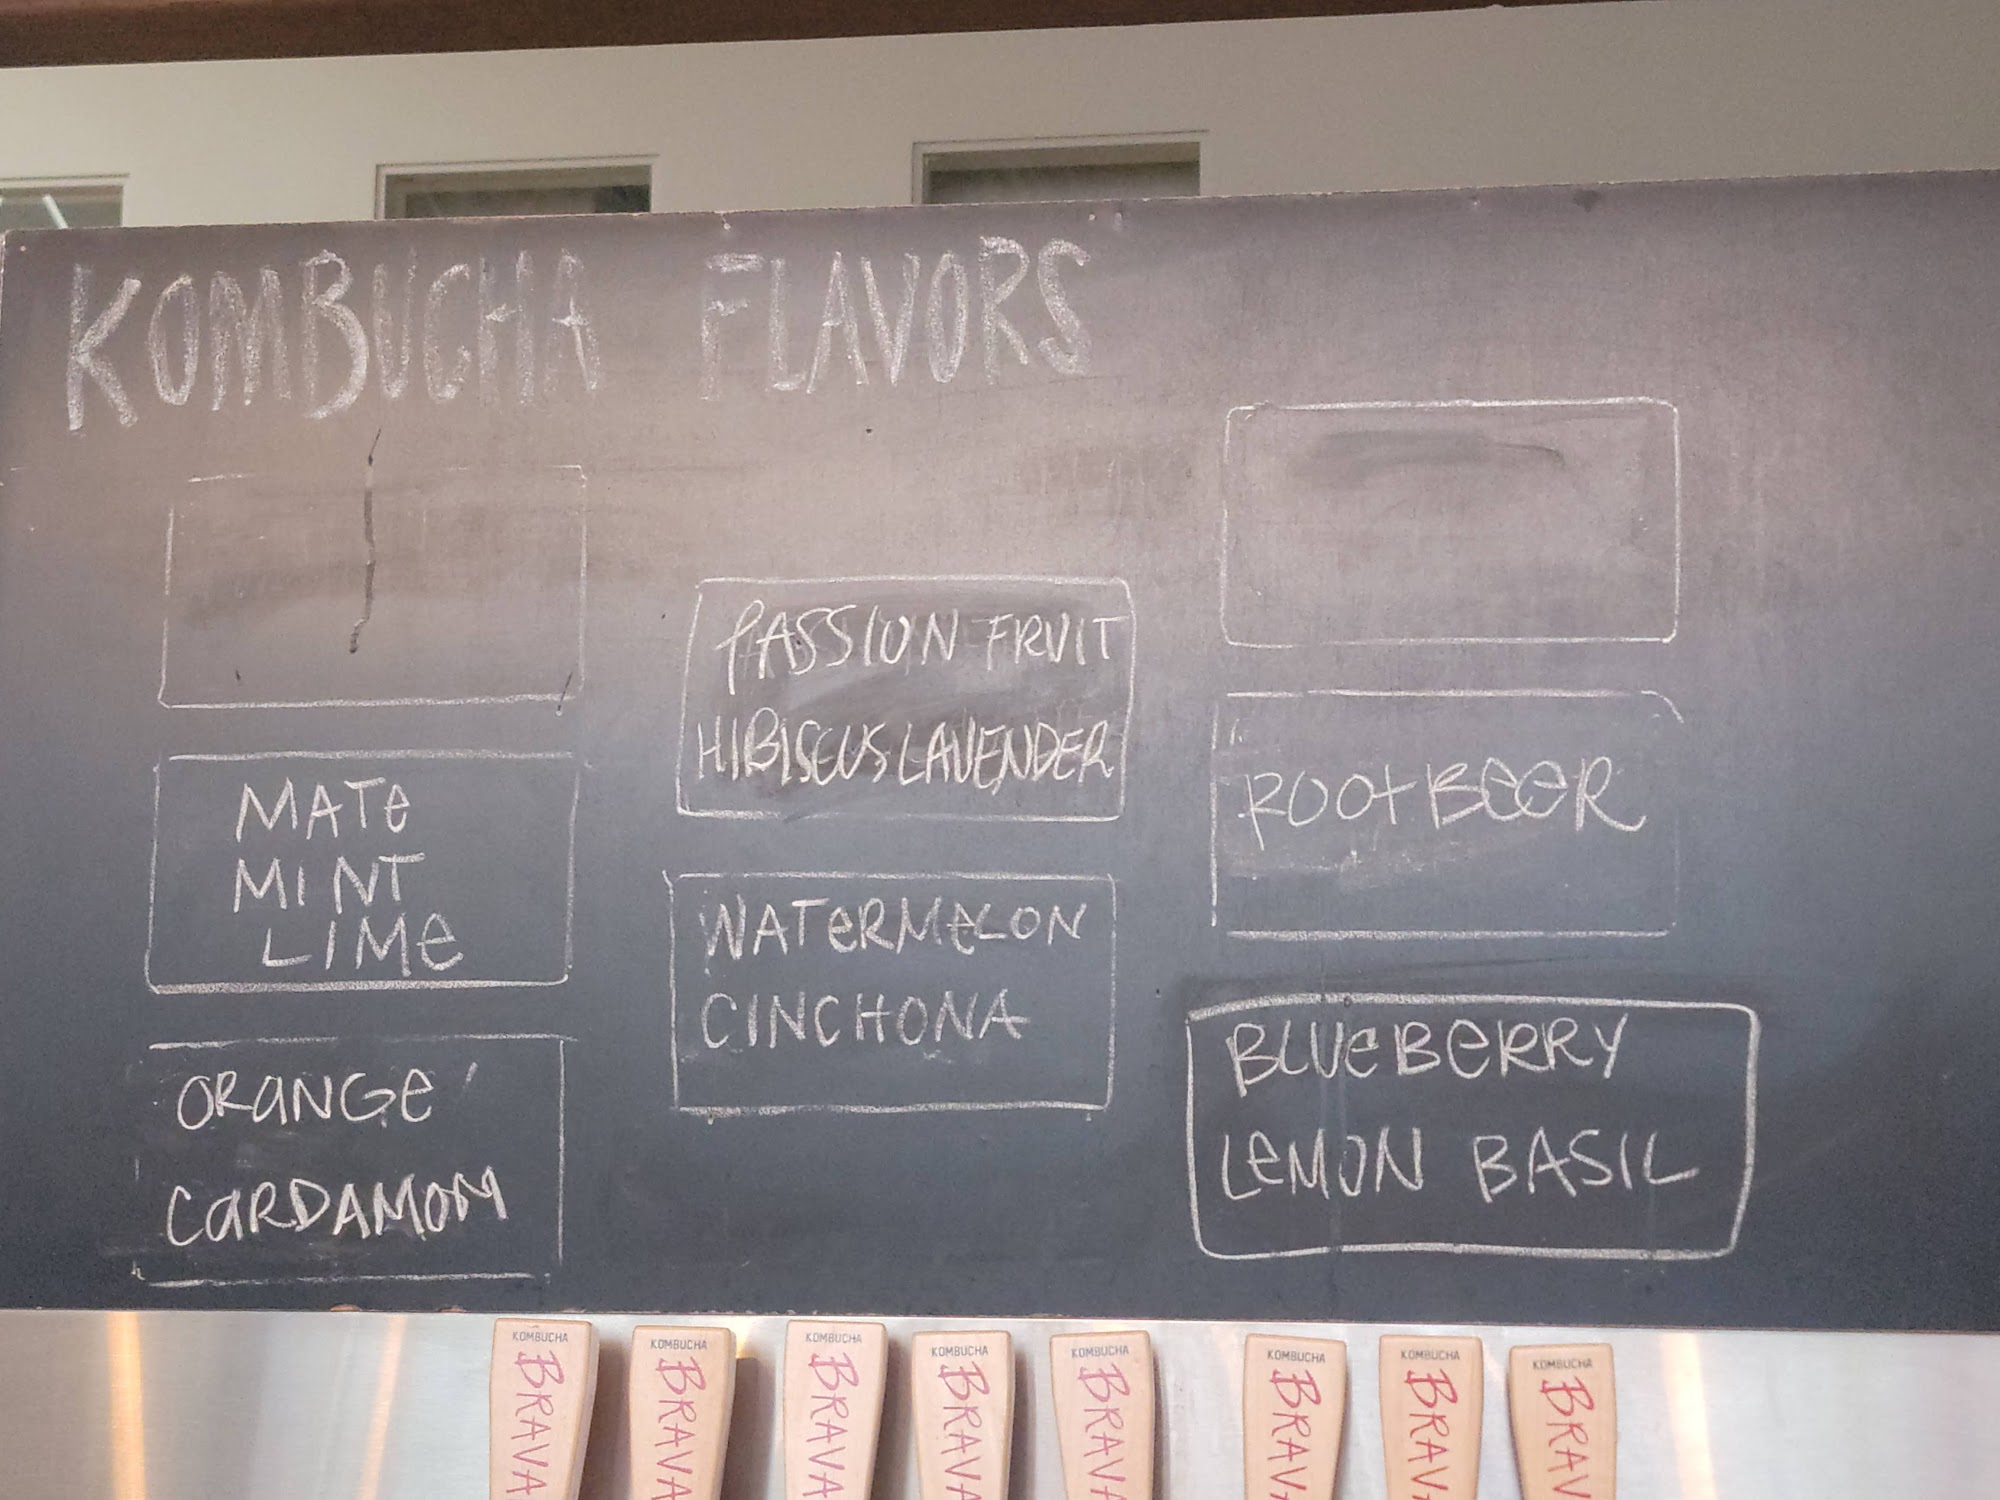 KOMBUCHA FLAVORS
MATe
MINT
LIMe
ORaNGe
CaRDAMOM
PASSION FRUIT
HIBISCUS LAVENDER
WATeRMeLON
CINCHONA
ROOtBeeR
BLUeBeRRY
LeMON BASIL
KOMBUCHA
BRAVA
KOMBUCHA
BRAVA
KOMBUCHA
BRAVA
KOMBUCHA
BRAVA
KOMBUCHA
BRAVA
KOMBUCHA
BRAVA
KOMBUCHA
BRAVA
KOMBUCHA
BRAV